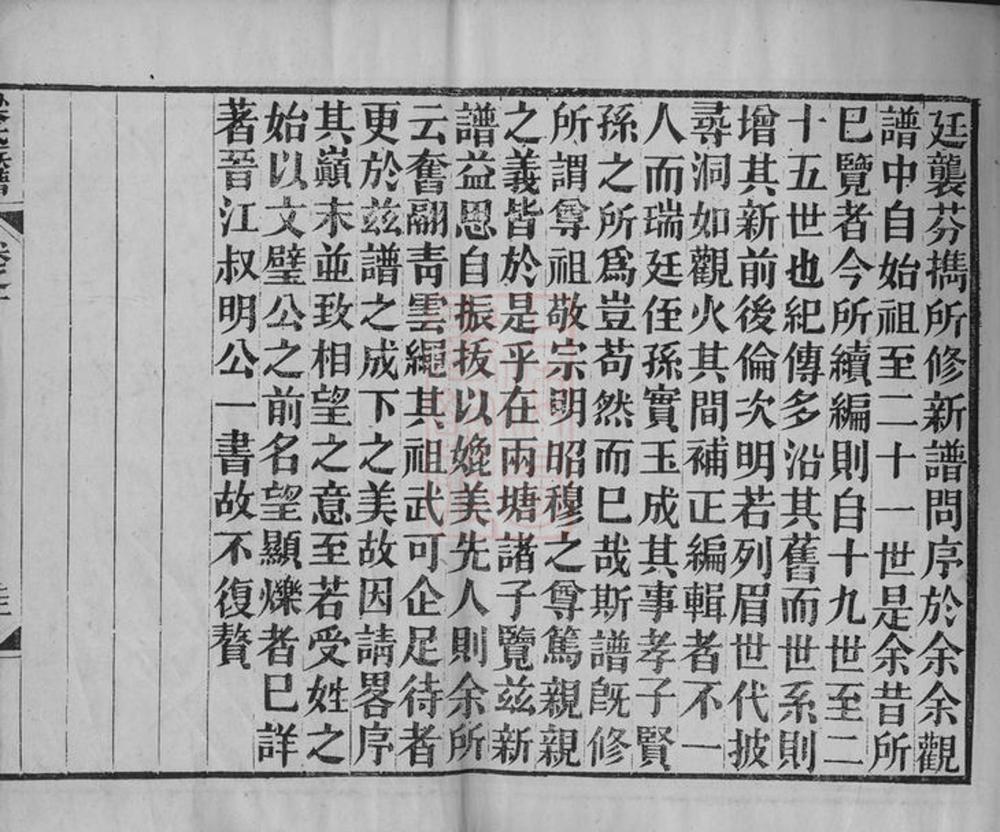 廷襲芬擕所修新譜問序於余余觀
譜中自始祖至二十一世是余昔所
巳覽者今所續編則自十九世至二
十五世也紀傳多沿其舊而世系則
增其新前後倫次明若列眉世代披
尋洞如觀火其間補正編輯者不一
人而瑞廷侄孫實玉成其事孝子賢
孫之所爲豈苟然而巳哉斯譜旣修
所謂尊祖敬宗明昭穆之尊篤親親
之義皆於是乎在兩塘諸子覽茲新
譜益思自振抜以媲美先人則余所
云奮翮靑雲繩其祖武可企足待者
更於茲譜之成下之美故因請畧序
其巔末並致相望之意至若受姓之
始以文璧公之前名望顯爍者巳詳
著晉江叔明公一書故不復贅